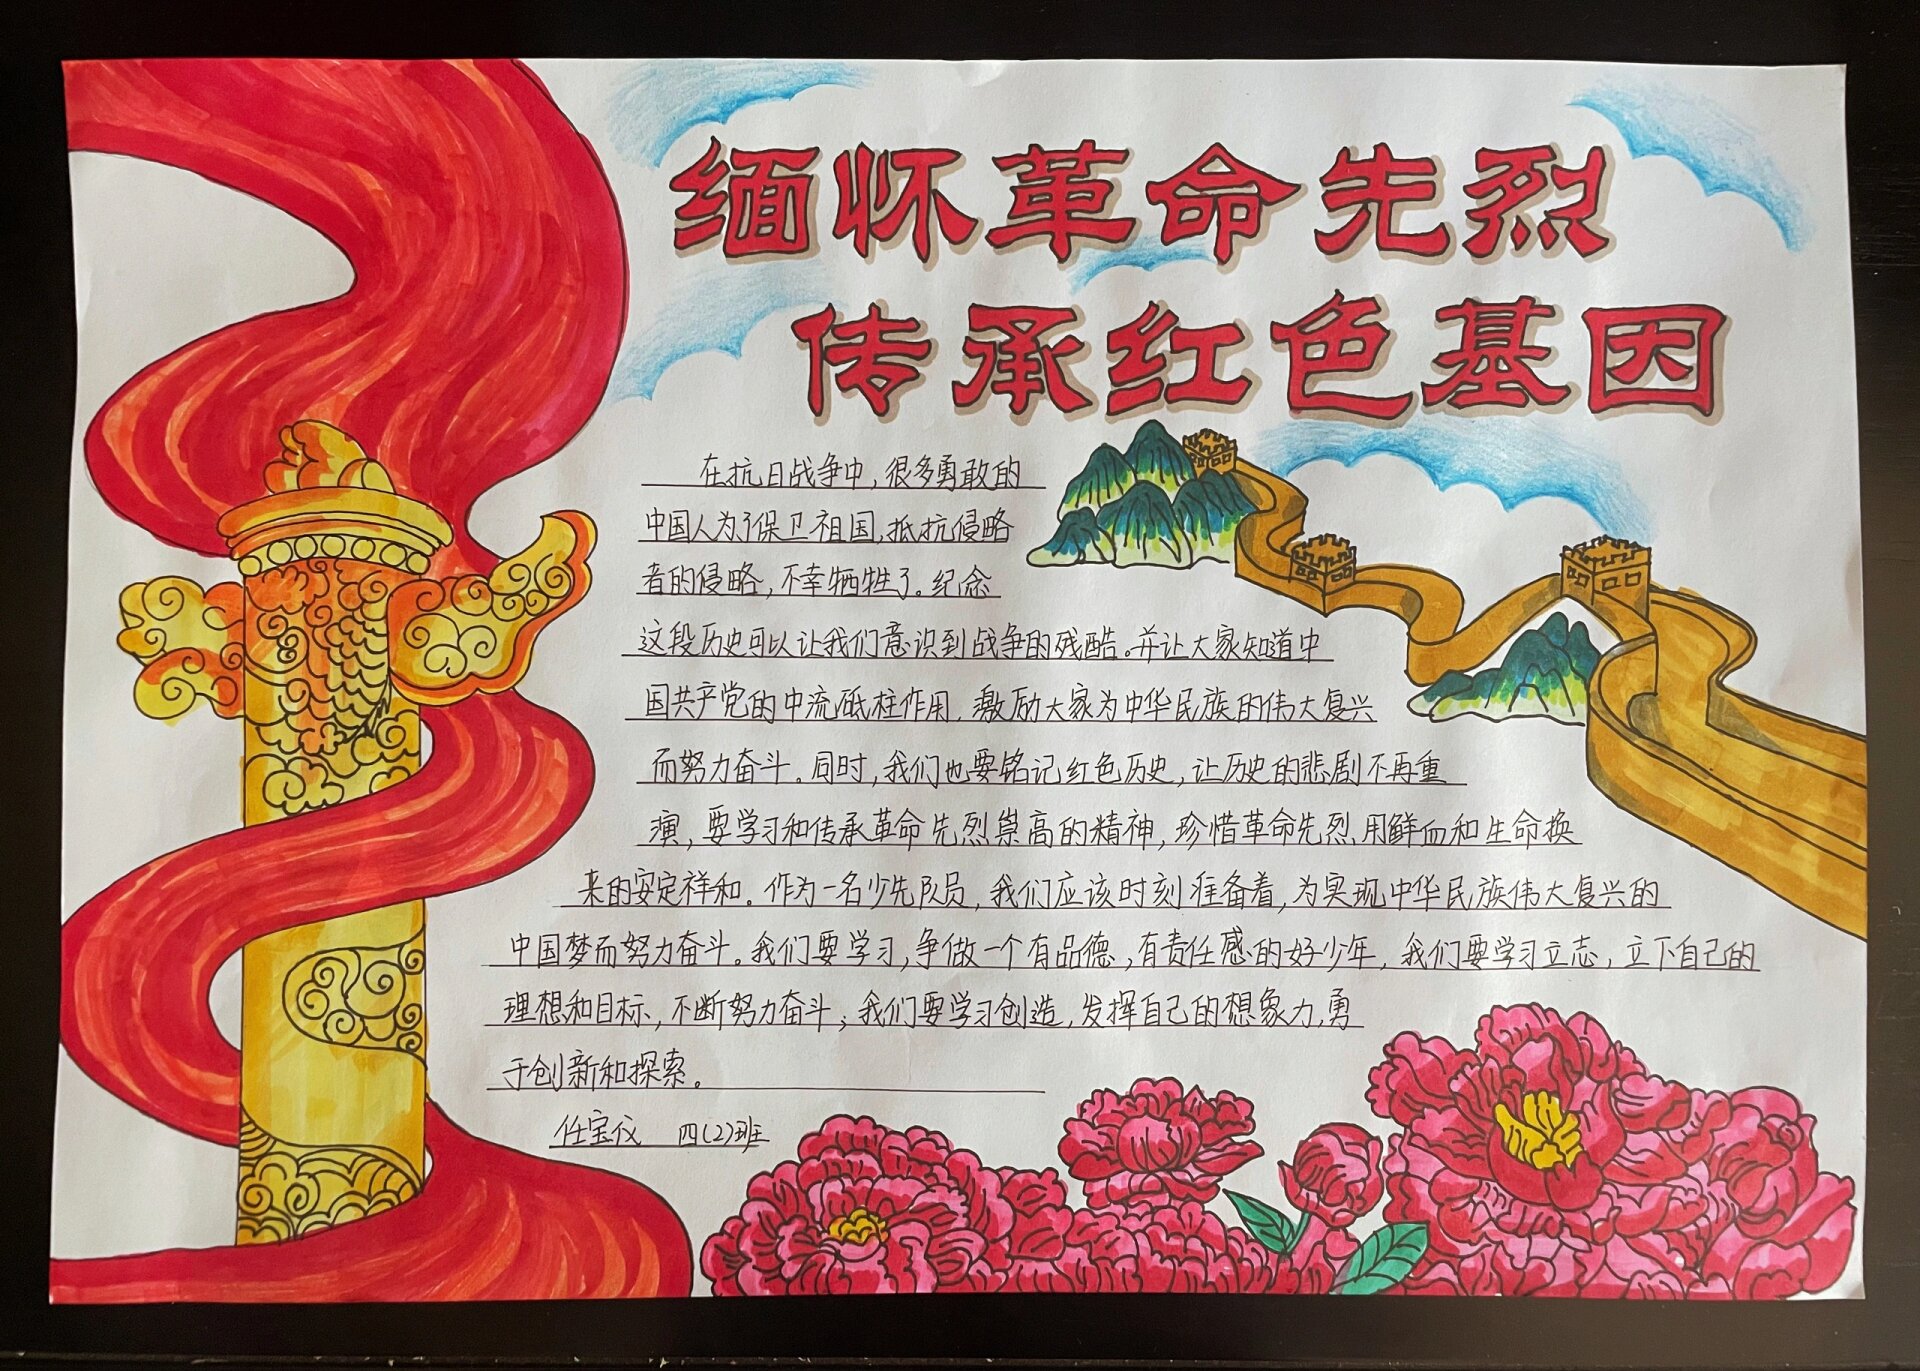 缅怀革命先烈
传承红色基因
在抗日战争中,很多勇敢的
中国人为了保卫祖国,抵抗侵略
者的侵略,不幸牺牲了。纪念
这段历史可以让我们意识到战争的残酷。并让大家知道中
国共产党的中流砥柱作用,激励大家为中华民族的伟大复兴
而努力奋斗。同时,我们也要铭记红色历史,让历史的悲剧不再重
演,要学习和传承革命先烈崇高的精神,珍惜革命先烈用鲜血和生命换
来的安定祥和。作为一名少先队员,我们应该时刻准备着,为实现中华民族伟大复兴的
中国梦而努力奋斗。我们要学习,争做一个有品德,有责任感的好少年,我们要学习立志,立下自己的
理想和目标,不断努力奋斗;我们要学习创造,发挥自己的想象力,勇
于创新和探索。
任宝仪 四(2)班